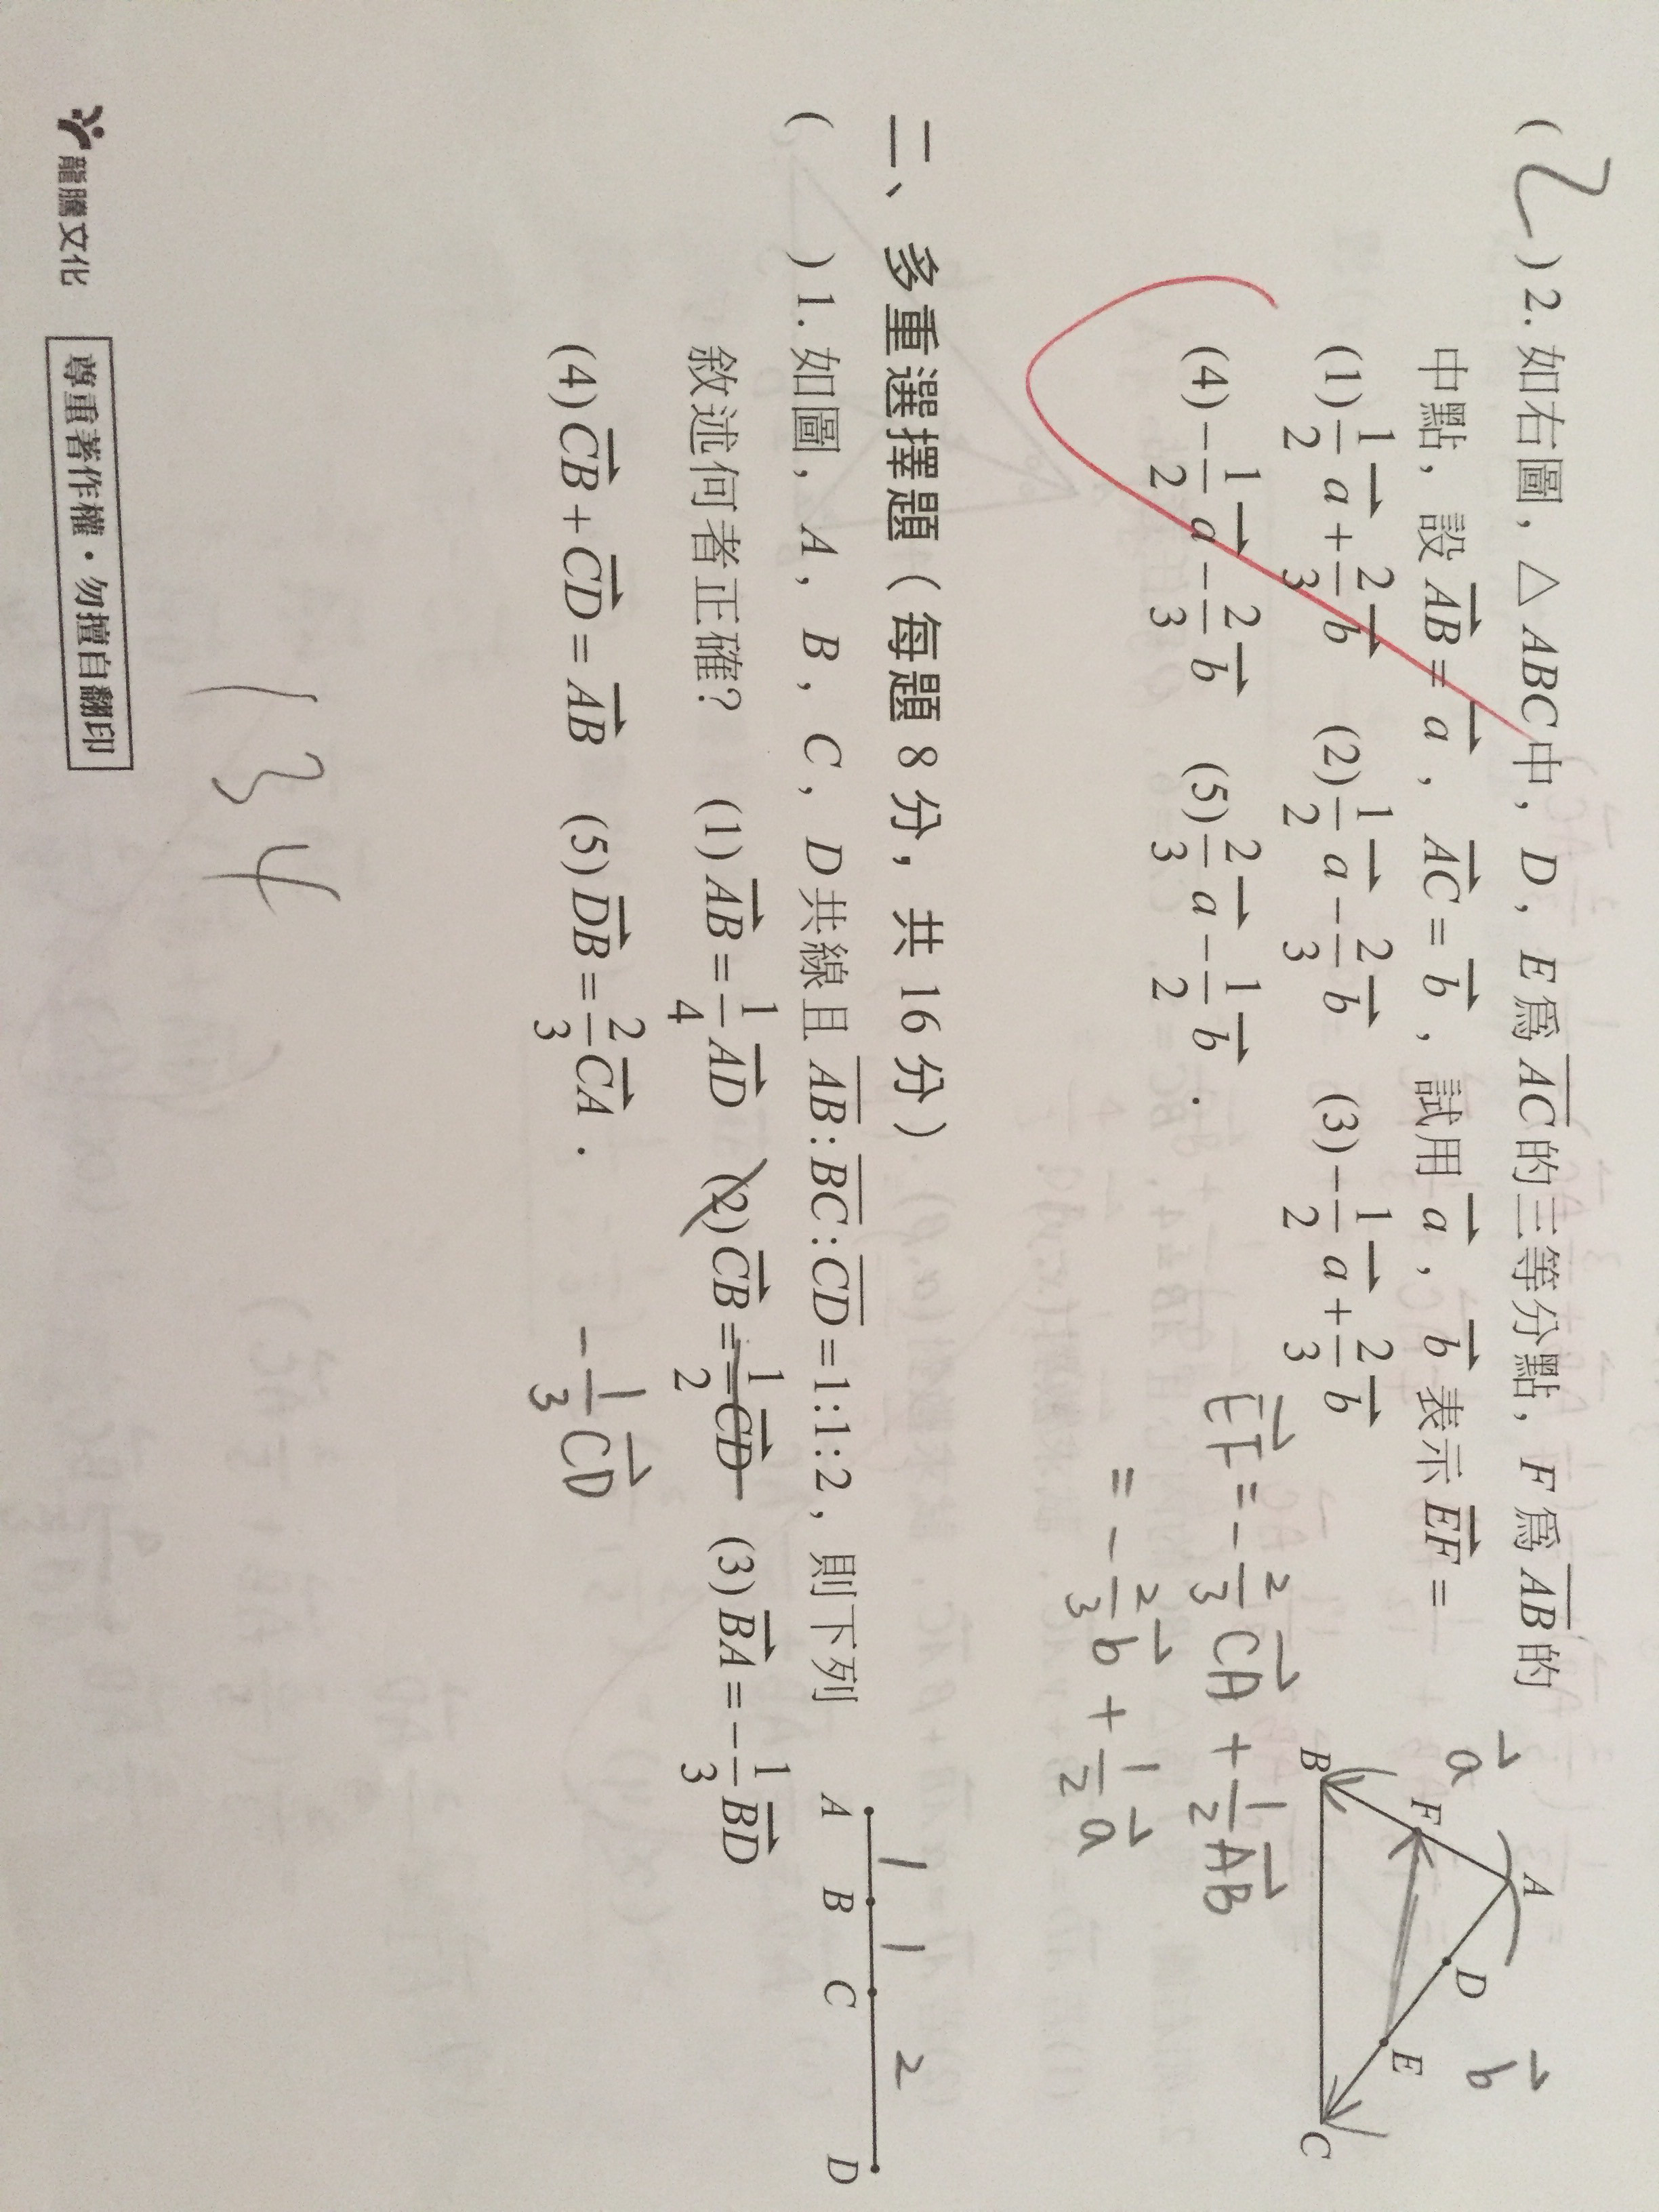 ( 2 ) 2. 如右圖，△ABC中，D，E為AC的三等分點，F為AB的
中點，設AB = a，AC = b，試用a，b表示EF =
(1) 1/2 a + 2/3 b (2) 1/2 a − 2/3 b (3) −1/2 a + 2/3 b
(4) −1/2 a − 2/3 b (5) 2/3 a − 1/2 b .
EF = − 2/3 CA + 1/2 AB
= − 2/3 b + 1/2 a
a
b
A
B
C
D
E
F
二、多重選擇題（每題 8 分，共 16 分）
( ) 1. 如圖，A，B，C，D共線且AB:BC:CD = 1:1:2，則下列
敘述何者正確？ (1) AB = 1/4 AD (2) CB = 1/2 CD (3) BA = −1/3 BD
(4) CB + CD = AB (5) DB = 2/3 CA .
− 1/3 CD
A B C D
1 1 2
1 3 4
龍騰文化 尊重著作權・勿擅自翻印